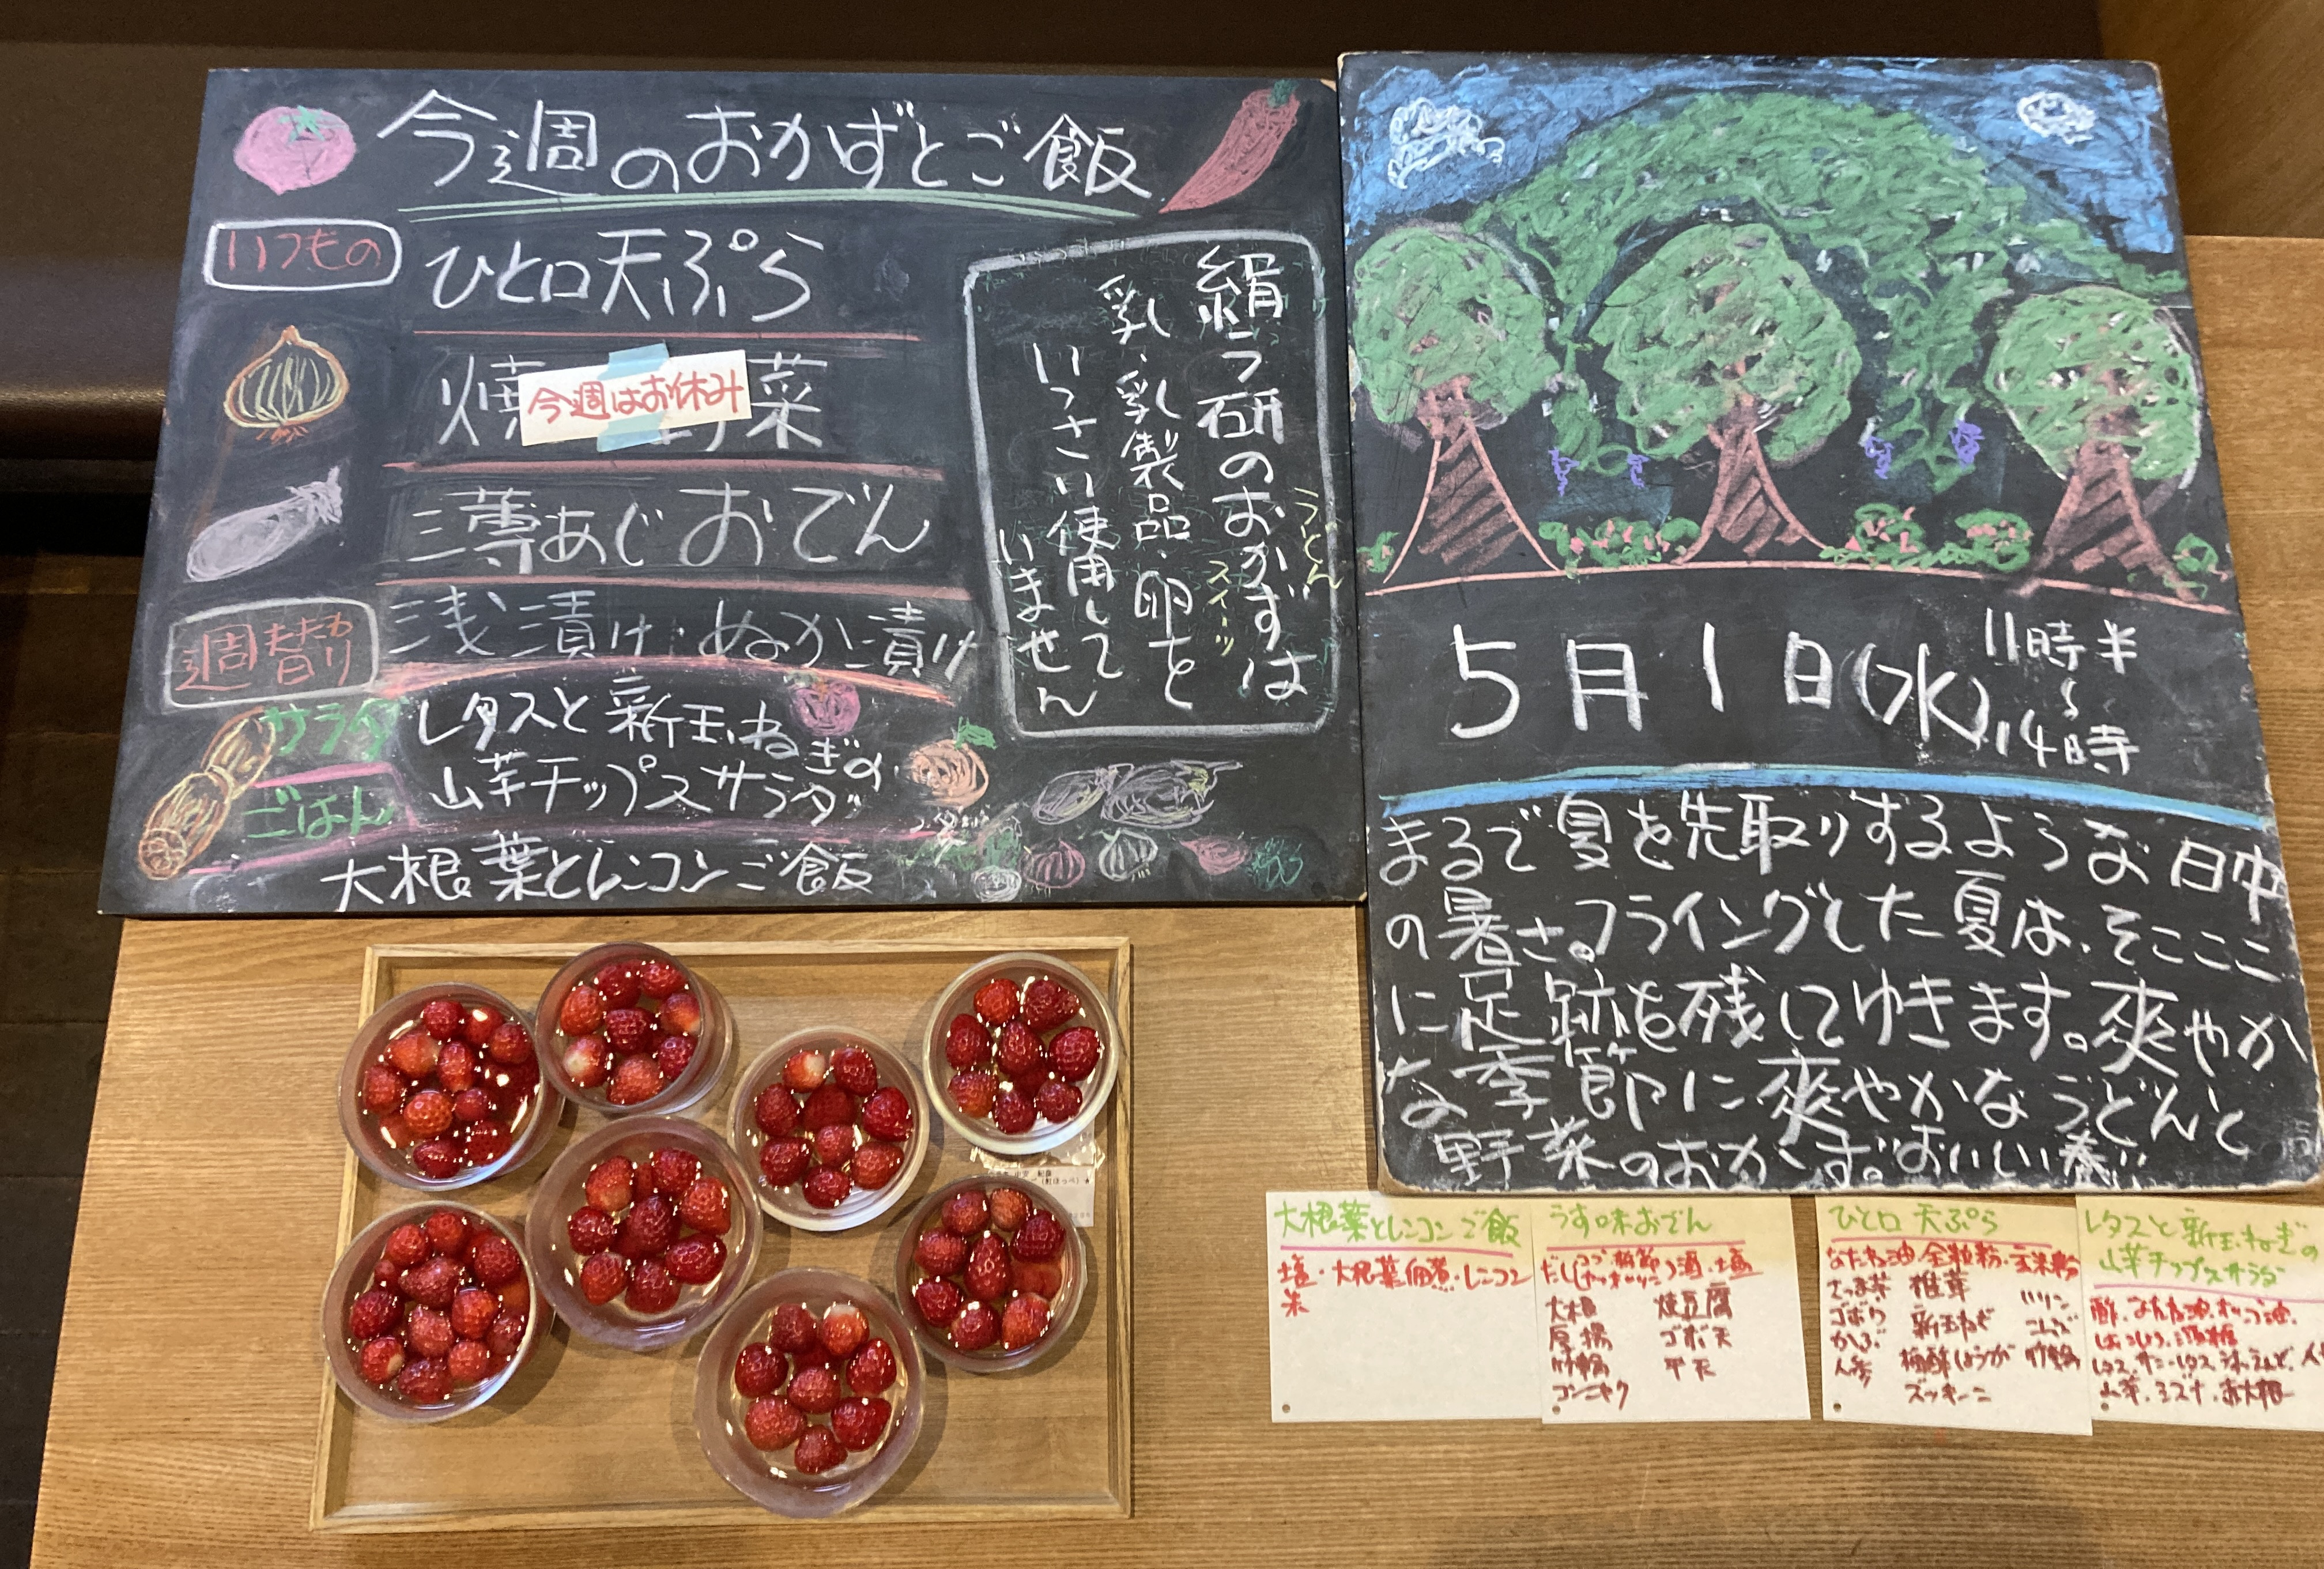 今週のおかずとご飯
いつもの
ひと口天ぷら
焼 菜
今週はお休み
三尊あじおでん
浅漬け・ぬか漬け
週替わり
サラダ
レタスと新玉ねぎの
山芋チップスサラダ
ごはん
大根葉とレンコンご飯
絹う研のおかずは
うどん
スイーツ
乳、乳製品・卵を
いっさい使用して
いません
5月1日(水)
11時半
〜
14時
まるで夏を先取りするような日中
の暑さ。フライングとした夏は、そこここ
に足跡を残してゆきます。爽やか
な季節に爽やかなうどんと
野菜のおかず。おいしい
(紅ほっぺ)★
大根葉とレンコンご飯
塩・大根葉佃煮・レンコン
米
うす味おでん
酒・塩
大根
厚揚
竹輪
コンニャク
焼豆腐
ゴボ天
平天
ひと口天ぷら
なたね油・全粒粉・玄米粉
さつま芋
ゴボウ
かぶ
人参
椎茸
新玉ねぎ
梅酢しょうが
ズッキーニ
竹輪
レタスと新玉ねぎの
山芋チップスサラダ
酢、なたね油
山芋、ミズナ、赤大根